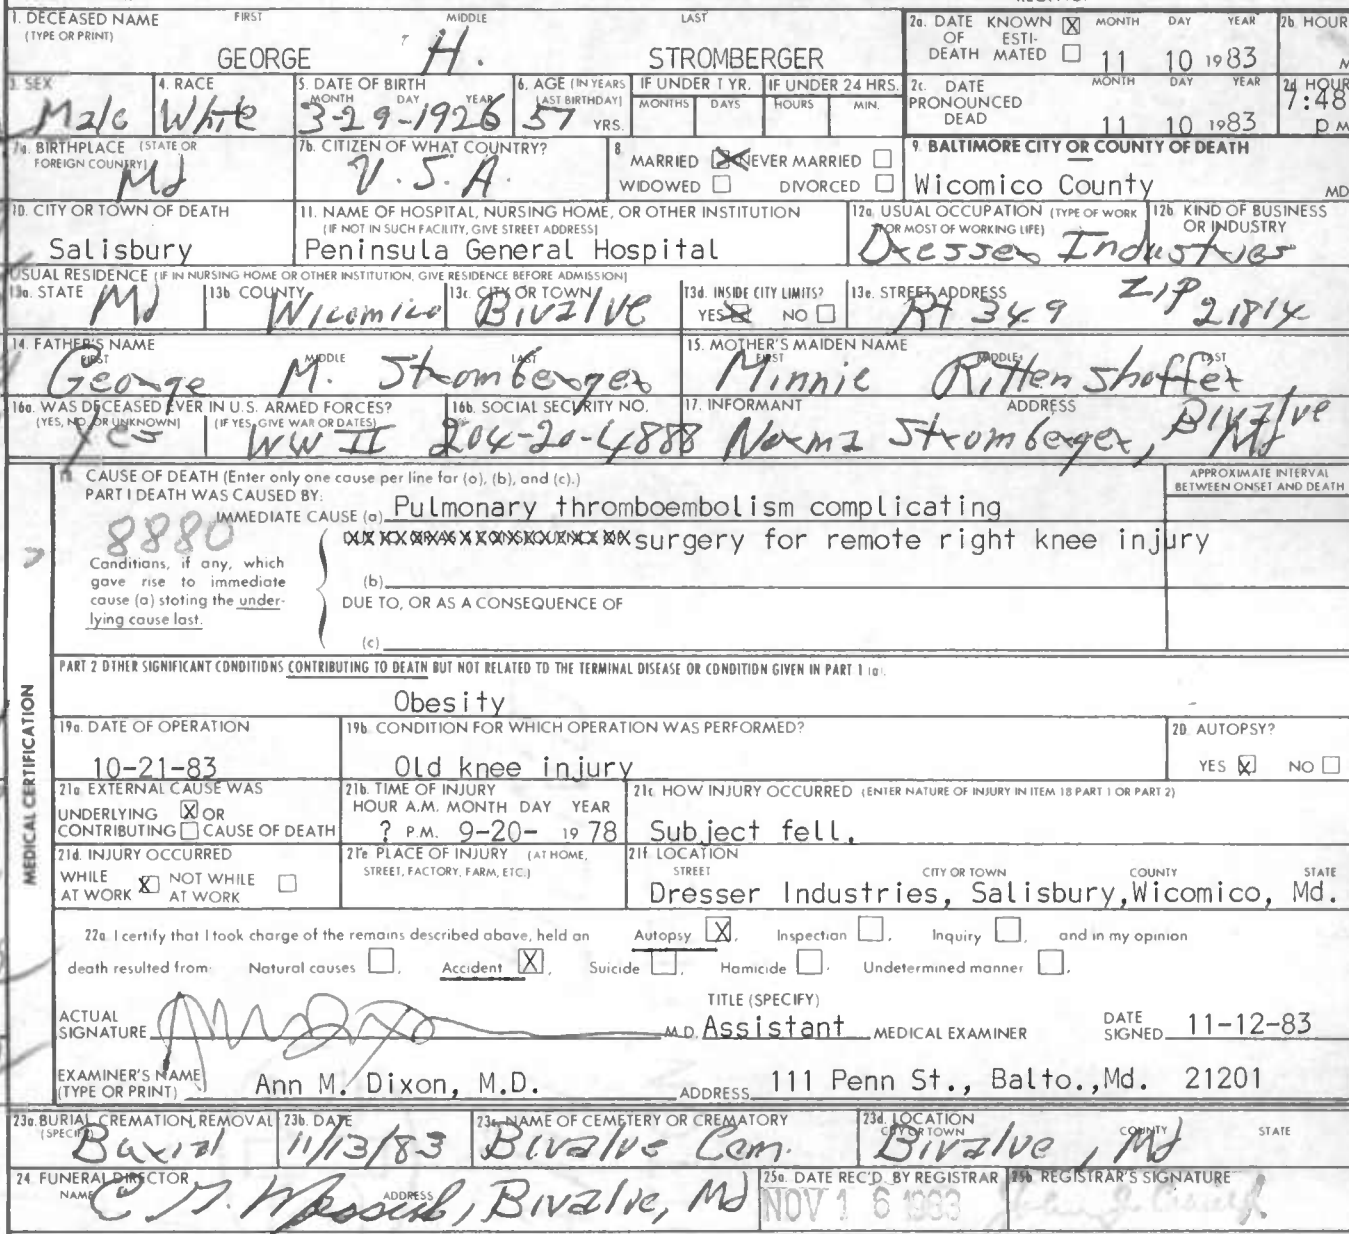 1. DECEASED NAME FIRST MIDDLE LAST
(TYPE OR PRINT)
GEORGE H. STROMBERGER
2a. DATE KNOWN X MONTH DAY YEAR
OF ESTI-
DEATH MATED
11 10 1983
2b. HOUR
M
3. SEX
Male
4. RACE
White
5. DATE OF BIRTH
MONTH DAY YEAR
3-29-1926
6. AGE (IN YEARS
LAST BIRTHDAY)
57 YRS.
IF UNDER 1 YR.
MONTHS DAYS
IF UNDER 24 HRS.
HOURS MIN.
2c. DATE MONTH DAY YEAR
PRONOUNCED
DEAD
11 10 1983
2d. HOUR
7:48
P M
7a. BIRTHPLACE (STATE OR
FOREIGN COUNTRY)
Md
7b. CITIZEN OF WHAT COUNTRY?
U.S.A.
8
MARRIED X NEVER MARRIED
WIDOWED DIVORCED
9. BALTIMORE CITY OR COUNTY OF DEATH
Wicomico County MD
10. CITY OR TOWN OF DEATH
Salisbury
11. NAME OF HOSPITAL, NURSING HOME, OR OTHER INSTITUTION
(IF NOT IN SUCH FACILITY, GIVE STREET ADDRESS)
Peninsula General Hospital
12a. USUAL OCCUPATION (TYPE OF WORK
FOR MOST OF WORKING LIFE)
12b. KIND OF BUSINESS
OR INDUSTRY
Dresser Industries
USUAL RESIDENCE (IF IN NURSING HOME OR OTHER INSTITUTION, GIVE RESIDENCE BEFORE ADMISSION)
13a. STATE
Md
13b. COUNTY
Wicomico
13c. CITY OR TOWN
Bivalve
13d. INSIDE CITY LIMITS?
YES X NO
13e. STREET ADDRESS
Rt 349 ZIP 21814
14. FATHER'S NAME
FIRST MIDDLE LAST
George M. Stromberger
15. MOTHER'S MAIDEN NAME
FIRST MIDDLE LAST
Minnie Rittenshoffer
16a. WAS DECEASED EVER IN U.S. ARMED FORCES?
(YES, NO, OR UNKNOWN) (IF YES, GIVE WAR OR DATES)
Yes WW II
16b. SOCIAL SECURITY NO.
204-20-4888
17. INFORMANT ADDRESS
Norma Stromberger, Bivalve Md
MEDICAL CERTIFICATION
CAUSE OF DEATH (Enter only one cause per line for (a), (b), and (c).)
PART I DEATH WAS CAUSED BY:
APPROXIMATE INTERVAL
BETWEEN ONSET AND DEATH
IMMEDIATE CAUSE (a) Pulmonary thromboembolism complicating
8880
surgery for remote right knee injury
Conditions, if any, which
gave rise to immediate
cause (a) stating the under-
lying cause last.
(b)
DUE TO, OR AS A CONSEQUENCE OF
(c)
PART 2 OTHER SIGNIFICANT CONDITIONS CONTRIBUTING TO DEATH BUT NOT RELATED TO THE TERMINAL DISEASE OR CONDITION GIVEN IN PART 1 (a).
Obesity
19a. DATE OF OPERATION
10-21-83
19b. CONDITION FOR WHICH OPERATION WAS PERFORMED?
Old knee injury
20. AUTOPSY?
YES X NO
21a. EXTERNAL CAUSE WAS
UNDERLYING X OR
CONTRIBUTING CAUSE OF DEATH
21b. TIME OF INJURY
HOUR A.M. MONTH DAY YEAR
? P.M. 9-20- 1978
21c. HOW INJURY OCCURRED (ENTER NATURE OF INJURY IN ITEM 18 PART 1 OR PART 2)
Subject fell.
21d. INJURY OCCURRED
WHILE X NOT WHILE
AT WORK AT WORK
21e. PLACE OF INJURY (AT HOME,
STREET, FACTORY, FARM, ETC.)
21f. LOCATION
STREET CITY OR TOWN COUNTY STATE
Dresser Industries, Salisbury, Wicomico, Md.
22a. I certify that I took charge of the remains described above, held an Autopsy X, Inspection , Inquiry , and in my opinion
death resulted from: Natural causes , Accident X, Suicide , Homicide . Undetermined manner .
ACTUAL
SIGNATURE M.D.
TITLE (SPECIFY)
Assistant MEDICAL EXAMINER
DATE
SIGNED 11-12-83
EXAMINER'S NAME
(TYPE OR PRINT) Ann M. Dixon, M.D. ADDRESS 111 Penn St., Balto.,Md. 21201
23a. BURIAL, CREMATION, REMOVAL
(SPECIFY)
Burial
23b. DATE
11/13/83
23c. NAME OF CEMETERY OR CREMATORY
Bivalve Cem.
23d. LOCATION
CITY OR TOWN COUNTY STATE
Bivalve, Md
24. FUNERAL DIRECTOR
NAME ADDRESS
Bivalve, Md
25a. DATE REC'D. BY REGISTRAR
NOV 16 1983
25b. REGISTRAR'S SIGNATURE